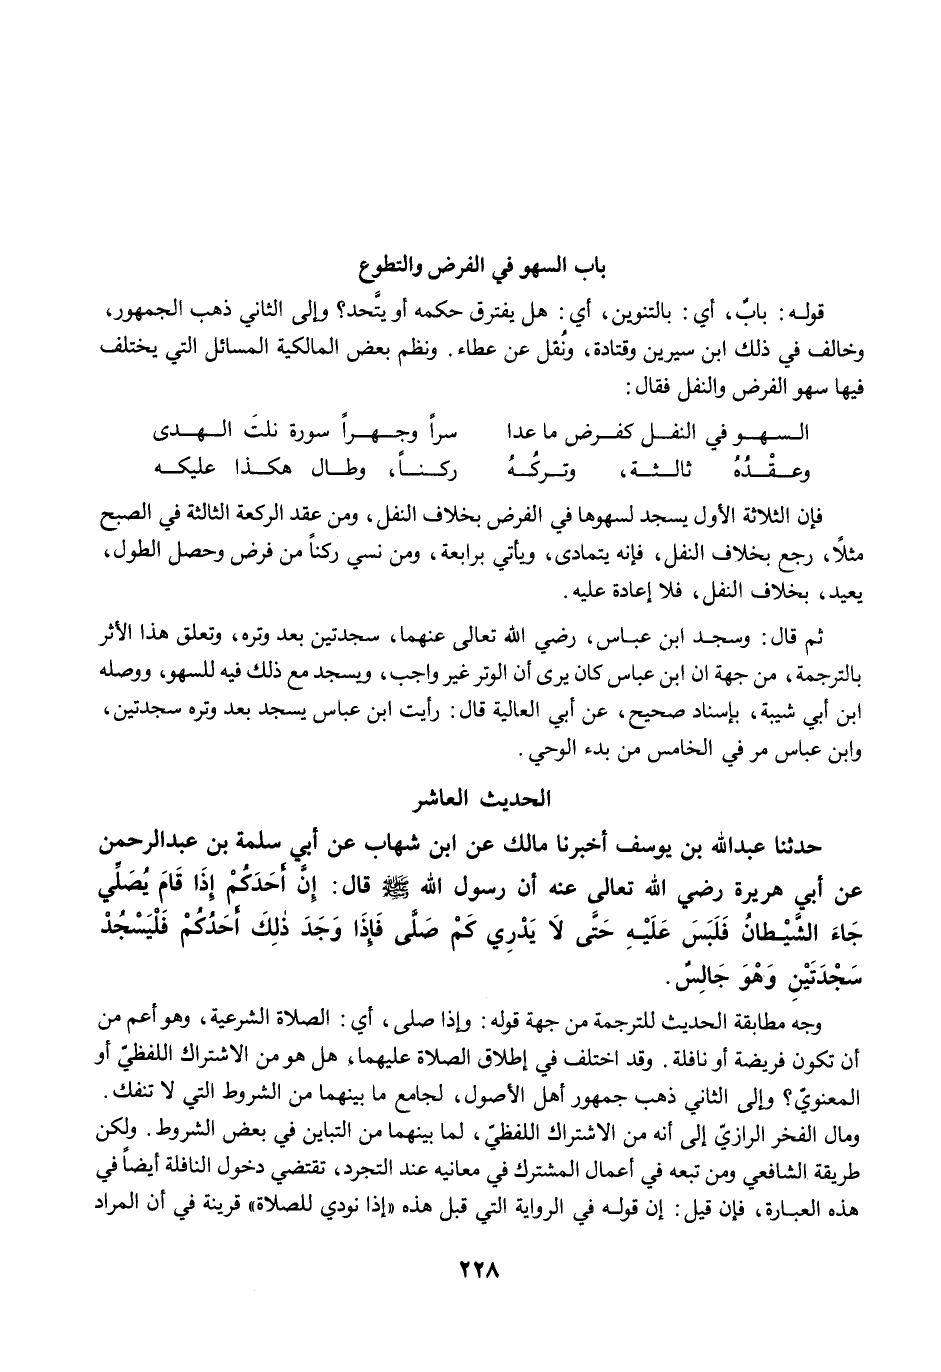 باب السهو في الفرض والتطوع
قوله: بابٌ، أي: بالتنوين، أي: هل يفترق حكمه أو يتَّحد؟ وإلى الثاني ذهب الجمهور،
وخالف في ذلك ابن سيرين وقتادة، ونُقل عن عطاء. ونظم بعض المالكية المسائل التي يختلف
فيها سهو الفرض والنفل فقال:
السهو في النفل كفرض ما عدا سراً وجهراً سورة نلتَ الهدى
وعقْدُهُ ثالثة، وتركُهُ ركناً، وطال هكذا عليكه
فإن الثلاثة الأول يسجد لسهوها في الفرض بخلاف النفل، ومن عقد الركعة الثالثة في الصبح
مثلاً، رجع بخلاف النفل، فإنه يتمادى، ويأتي برابعة، ومن نسي ركناً من فرض وحصل الطول،
يعيد، بخلاف النفل، فلا إعادة عليه.
ثم قال: وسجد ابن عباس، رضي الله تعالى عنهما، سجدتين بعد وتره، وتعلق هذا الأثر
بالترجمة، من جهة ان ابن عباس كان يرى أن الوتر غير واجب، ويسجد مع ذلك فيه للسهو، ووصله
ابن أبي شيبة، بإسناد صحيح، عن أبي العالية قال: رأيت ابن عباس يسجد بعد وتره سجدتين،
وابن عباس مر في الخامس من بدء الوحي.
الحديث العاشر
حدثنا عبدالله بن يوسف أخبرنا مالك عن ابن شهاب عن أبي سلمة بن عبدالرحمن
عن أبي هريرة رضي الله تعالى عنه أن رسول الله ﷺ قال: إِنَّ أَحَدَكُمْ إِذَا قَامَ يُصَلِّي
جَاءَ الشَّيْطانُ فَلَبَسَ عَلَيْهِ حَتَّى لَا يَدْرِي كَمْ صَلَّى فَإِذَا وَجَدَ ذٰلِكَ أَحَدُكُمْ فَلْيَسْجُدْ
سَجْدَتَيْنِ وَهْوَ جَالِسٌ.
وجه مطابقة الحديث للترجمة من جهة قوله: وإذا صلى، أي: الصلاة الشرعية، وهو أعم من
أن تكون فريضة أو نافلة. وقد اختلف في إطلاق الصلاة عليهما، هل هو من الاشتراك اللفظيّ أو
المعنويّ؟ وإلى الثاني ذهب جمهور أهل الأصول، لجامع ما بينهما من الشروط التي لا تنفك.
ومال الفخر الرازيّ إلى أنه من الاشتراك اللفظيّ، لما بينهما من التباين في بعض الشروط. ولكن
طريقة الشافعي ومن تبعه في أعمال المشترك في معانيه عند التجرد، تقتضي دخول النافلة أيضاً في
هذه العبارة، فإن قيل: إن قوله في الرواية التي قبل هذه «إذا نودي للصلاة» قرينة في أن المراد
٢٢٨